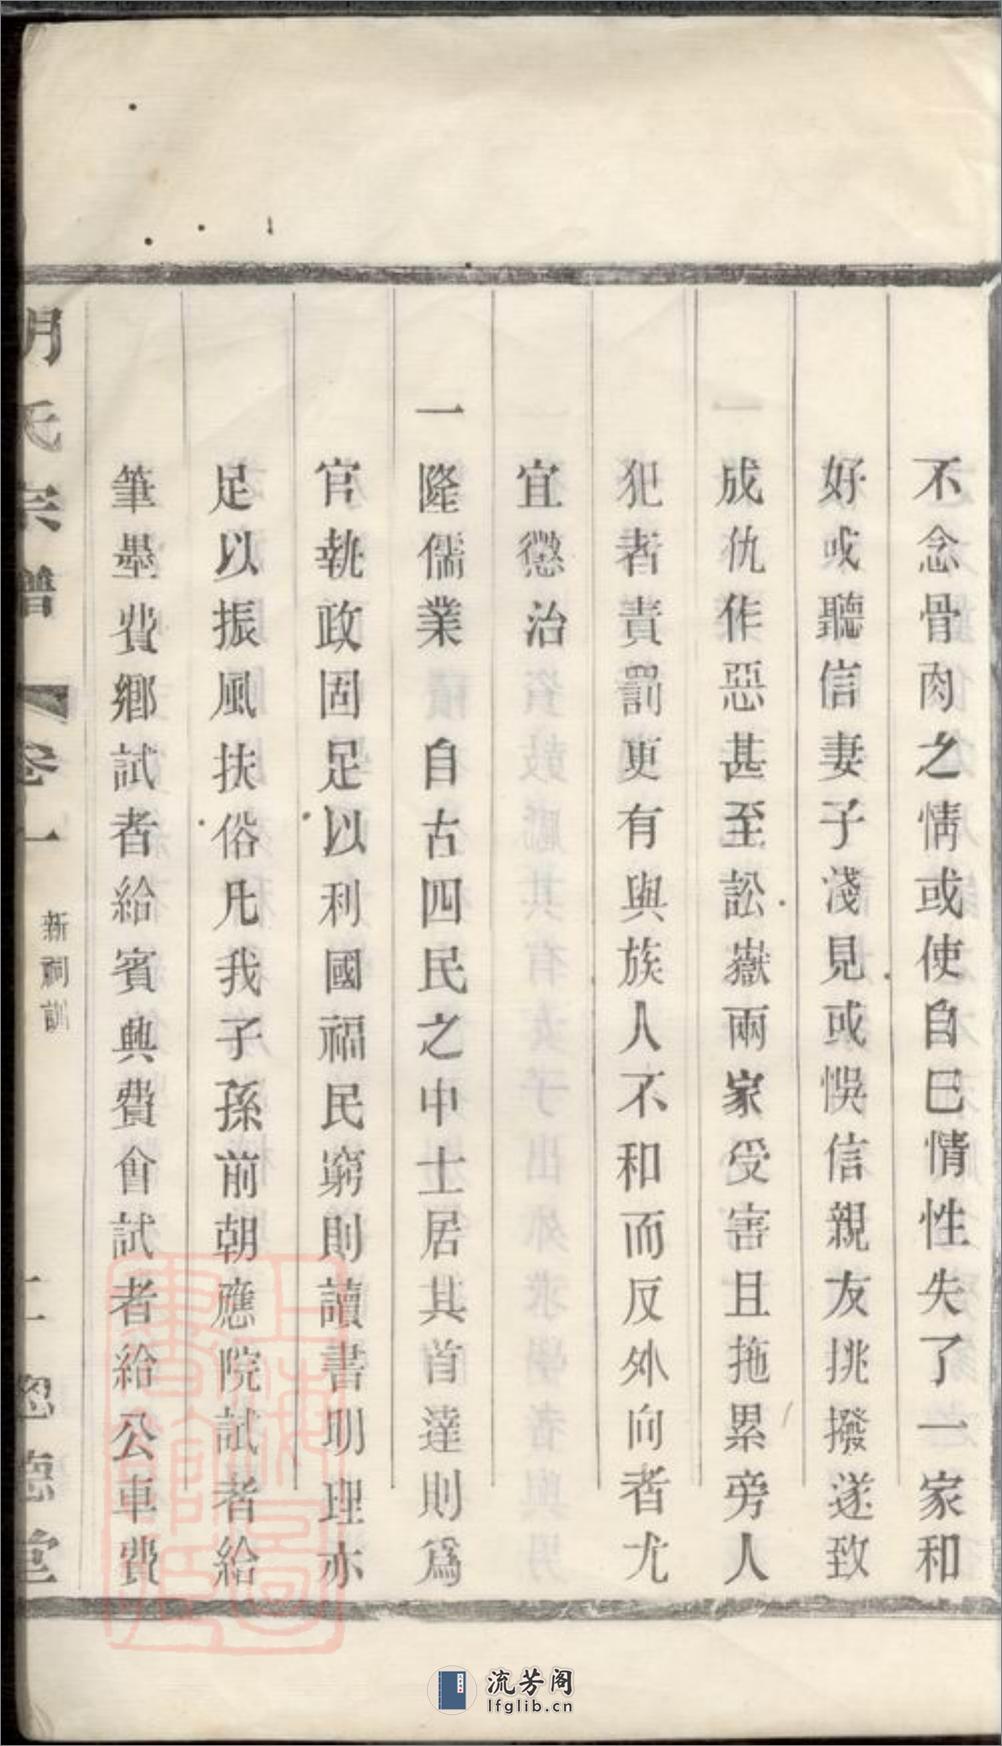 不念骨肉之情或使自已情性失了一家和
好或聽信妻子淺見或悞信親友挑撥遂致
成仇作惡甚至訟嶽兩家受害且拖累旁人
犯者責罰更有與族人不和而反外向者尤
宜懲治
一隆儒業　自古四民之中士居其首達則爲
官執政固足以利國福民窮則讀書明理亦
足以振風扶俗凡我子孫前朝應院試者給
筆墨費鄉試者給賓興費會試者給公車費
胡氏宗譜　卷一　新祠訓
德堂
流芳阁
lfglib.cn